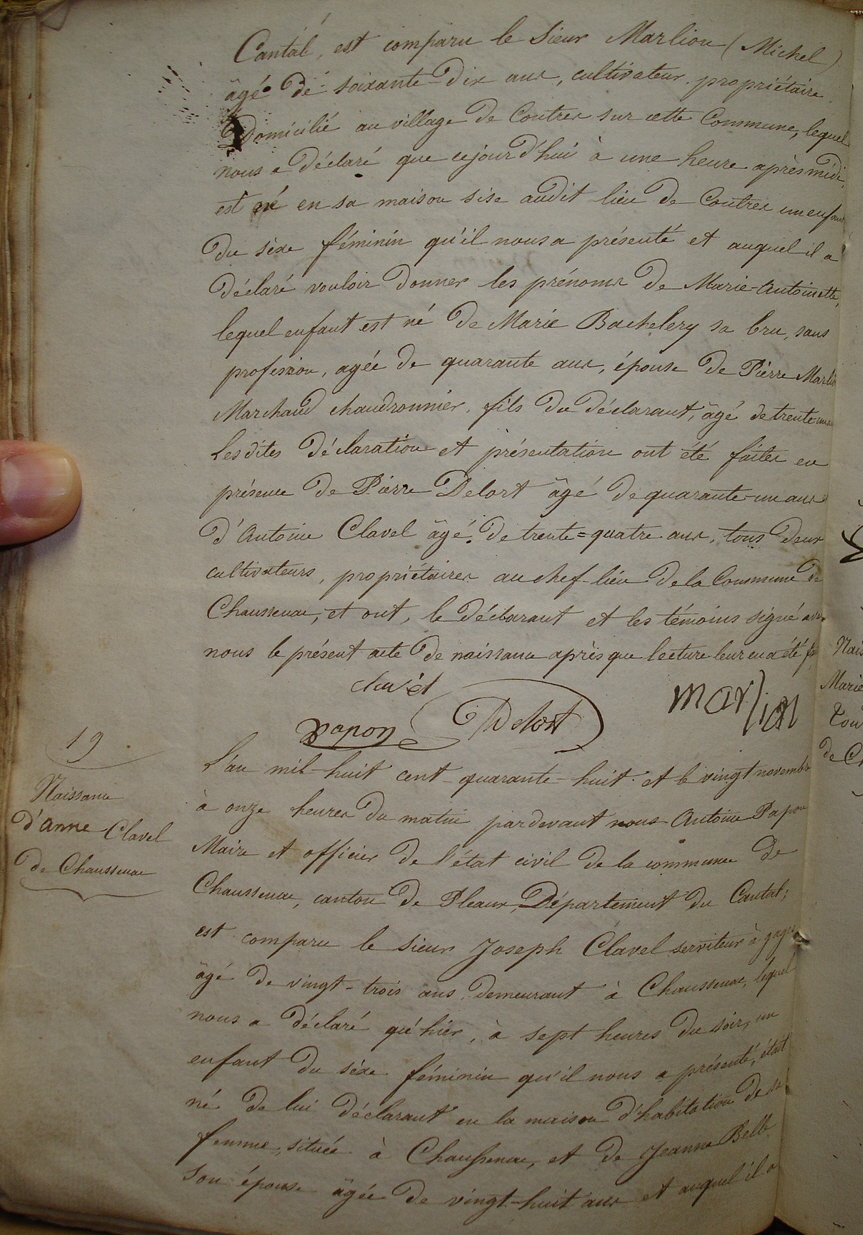 Cantal, est comparu le Sieur Marliou (Michel)
âgé de soixante-dix ans, cultivateur propriétaire
Domicilié au village de Contres sur cette Commune, lequel
nous a déclaré que cejourd'hui à une heure après midi,
est né en sa maison sise audit lieu de Contres un enfant
du sèxe féminin qu'il nous a présenté et auquel il a
déclaré vouloir donner les prénoms de Marie-Antoinette,
lequel enfant est né de Marie Bachelery sa bru, sans
profession, agée de quarante ans, épouse de Pierre
Marchand chaudronnier, fils du déclarant, âgé de trente
Lesdites déclaration et présentation ont été faites en
présence de Pierre Delort âgé de quarante-un ans
d'Antoine Clavel âgé de trente=quatre ans, tous deux
cultivateurs, propriétaires au chef lieu de la Commune de
Chaussenac, et ont, le déclarant et les témoins signé avec
nous le présent acte de naissance après que lecture leur en a été
clavel
papon Delort marliou
19
Naissance
d'anne Clavel
de Chaussenac
L'an mil-huit cent-quarante huit et le vingt novembre
à onze heures du matin pardevant nous Antoine Papon
Maire et officier de l'état civil de la commune de
Chaussenac, canton de Pleaux, Département du Cantal;
est comparu le sieur Joseph Clavel serviteur à gages
âgé de vingt-trois ans, demeurant à Chaussenac, lequel
nous a déclaré qu'hier, à sept heures du soir, un
enfant du sèxe féminin qu'il nous a présenté, était
né de lui déclarant en la maison d'habitation de sa
femme, située à Chaussenac, et de Jeanne Belle
son épouse âgée de vingt-huit ans et auquel il a
Marie
de Ch